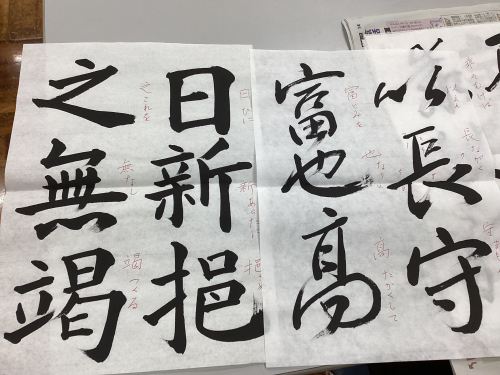 以長守
以
長ながく
守
富也高
富とみを
也なり
高たかくして
日新挹
日ひに
新あらた
挹
之無竭
之これを
無なし
竭つくる